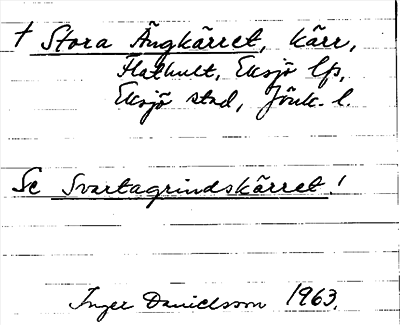 † Stora Ängkärret, kärr,
Flathult, Eksjö lfs,
Eksjö stad, Jönk. l.
Se Svartagrindskärret!
Inger Danielsson 1963.